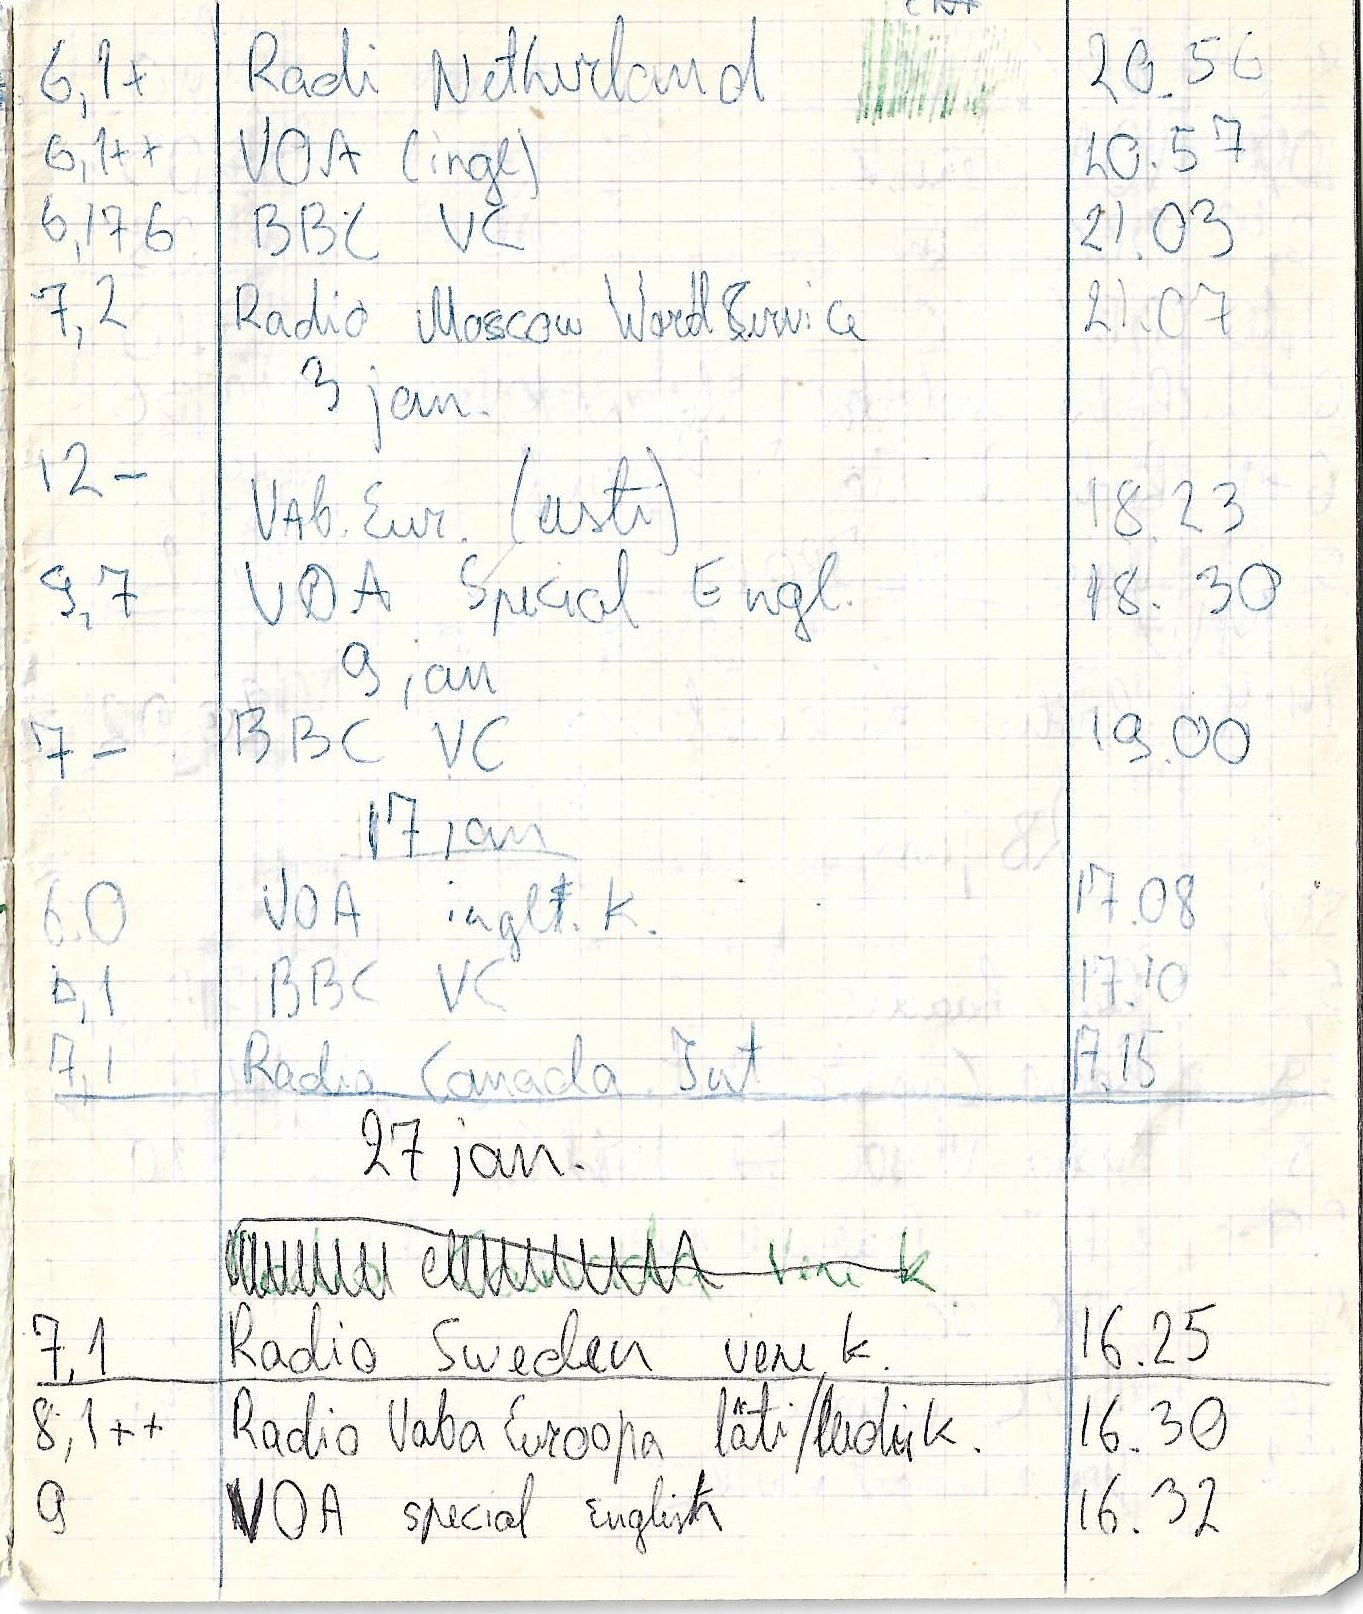 6,1+ Radi Netherland 20.56
6,1++ VOA (ingl) 20.57
6,176 BBC VC 21.03
7,2 Radio Moscow Word Service 21.07
3 jan.
12 - Vab. Eur. (eesti) 18.23
9,7 VOA Special Engl. 18.30
9 jan
7 - BBC VC 19.00
17 jan
6.0 VOA inglt. k. 17.08
BBC VC 17.10
7,1 Radio Canada Int 17,15
27 jan.
vene k.
7,1 Radio Sweden vene k. 16.25
8,1++ Radio Vaba Euroopa läti/leedu k. 16.30
9 VOA special english 16.32